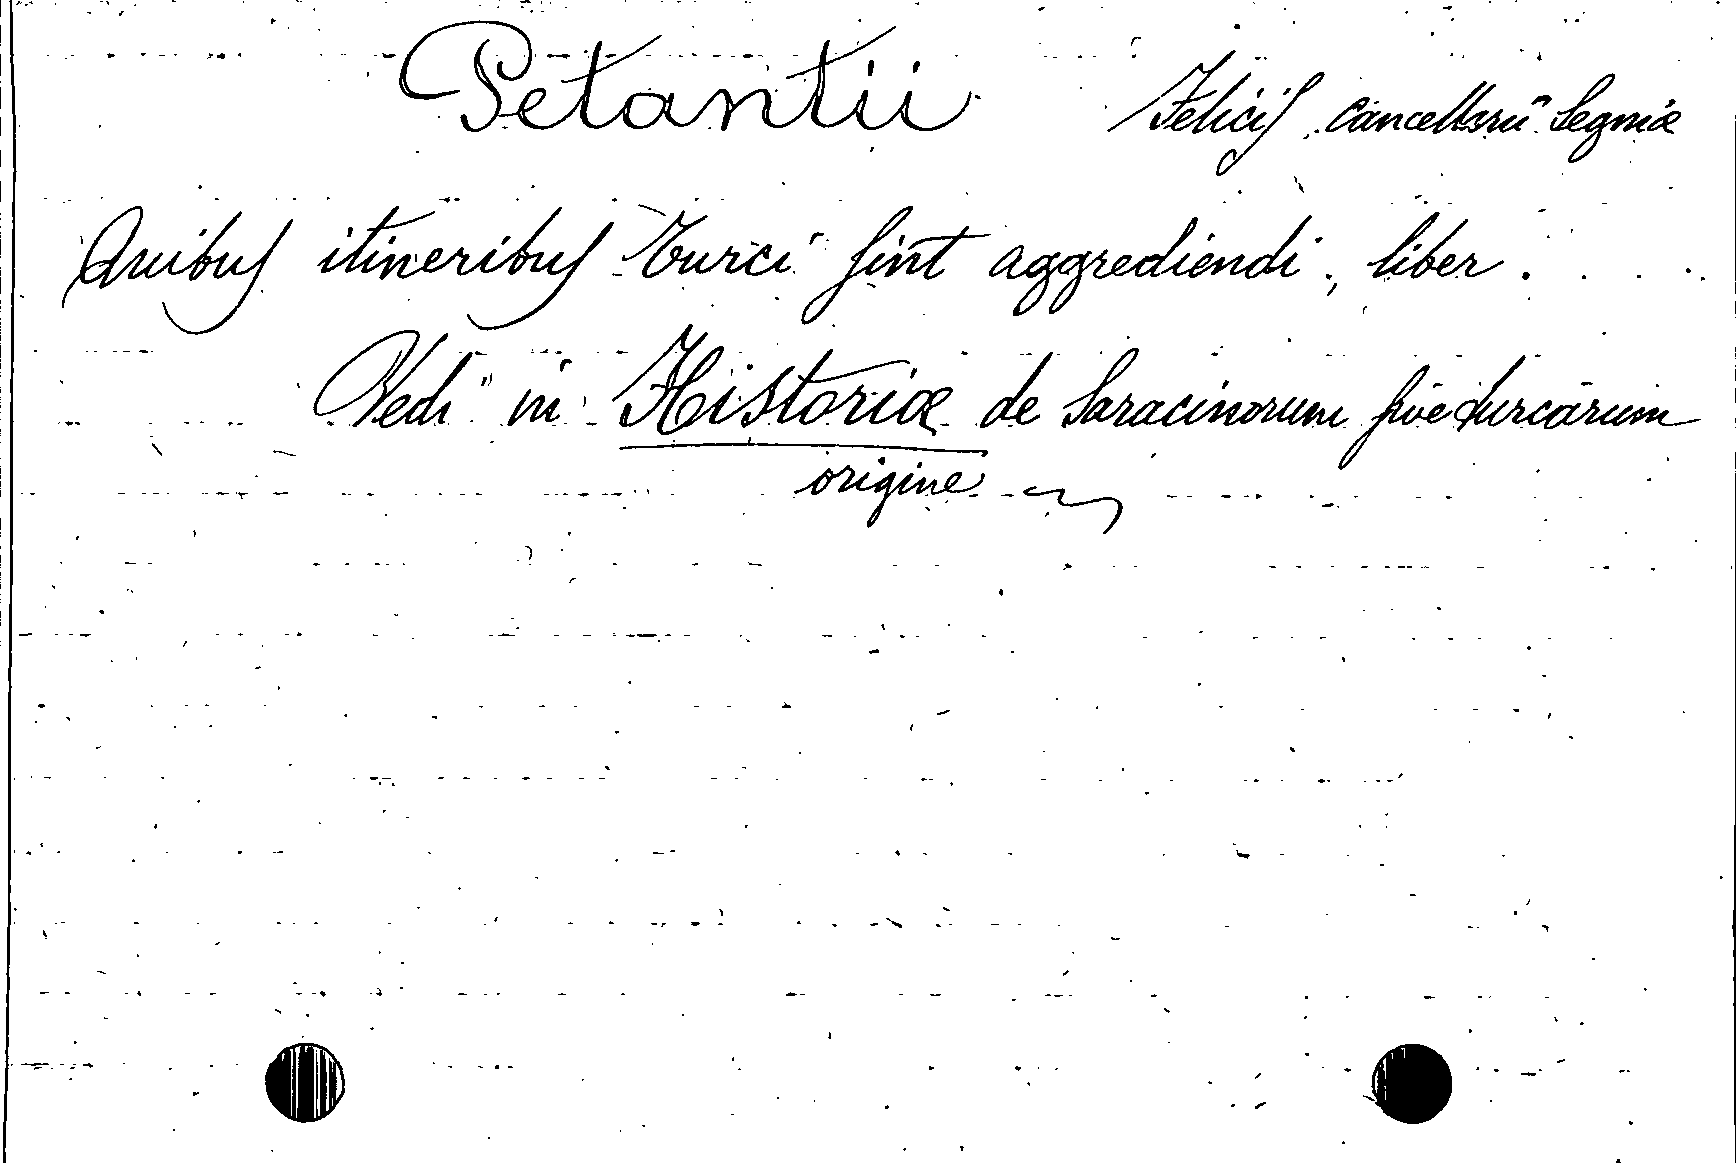 Petantii Felicis cancellarii Segniæ
Quibus itineribus Turci sint aggrediendi, liber.
Vedi in Historiæ de Saracinorum sive turcarum
origine